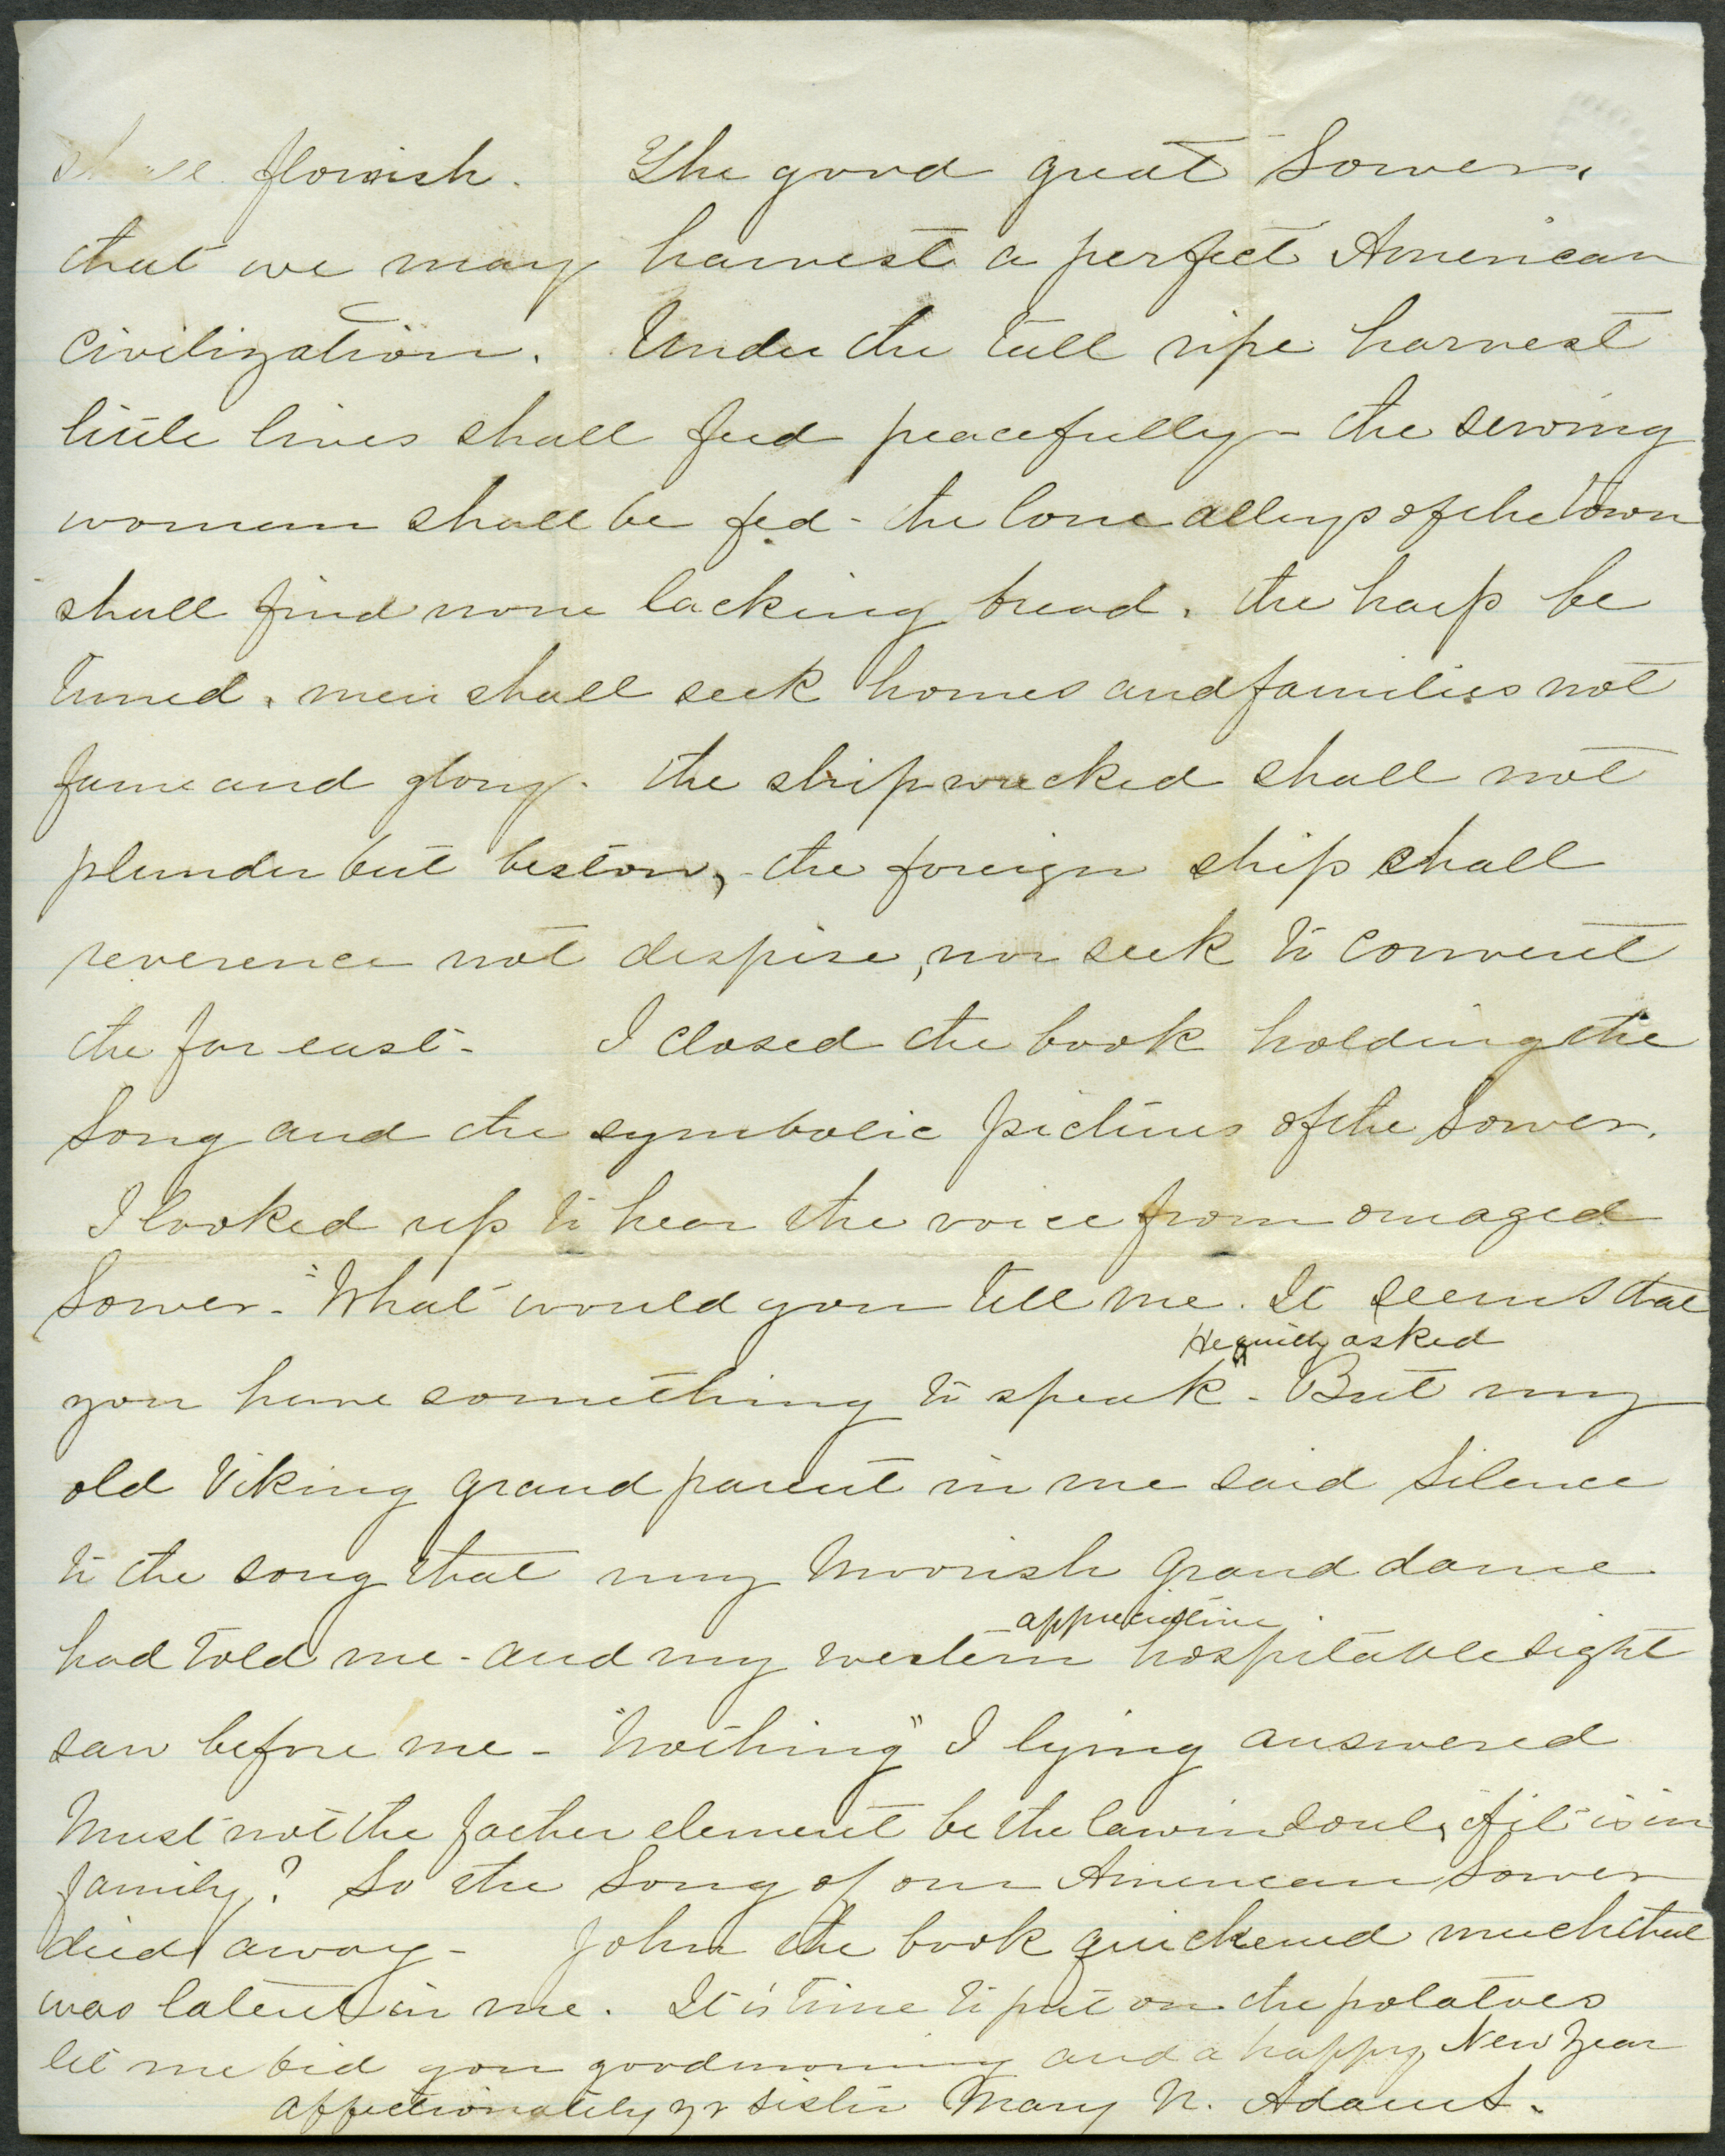 shall flourish. The good great Sower,
that we may harvest a perfect American
civilization. Under the tall ripe harvest
little lives shall feed peacefully - the sewing
women shall be fed - the lone alleys of the town
shall find none lacking bread, the harp be
tuned, men shall seek homes and families not
fame and glory. the shipwrecked shall not
plunder but bestow, - the foreign ship shall
reverence not despise, nor seek to convert
the far east - I closed the book holding the
Song and the symbolic pictures of the Sower.
I looked up to hear the voice from our aged
Sower - "What would you tell me. It seems that
He quietly asked
you have something to speak" - But my
old Viking grand parent in me said Silence
to the song that my Moorish grand dame
appreciative
had told me - and my western hospitable sight
saw before me - "Nothing" I lying answered
Must not the father element be the law in soul, if it is in
family? So the Song of our American Sower
died away - John the book quickened much that
was latent in me. It is time to put on the potatoes
let me bid you good morning and a happy New Year
affectionately yr sister Mary N. Adams.